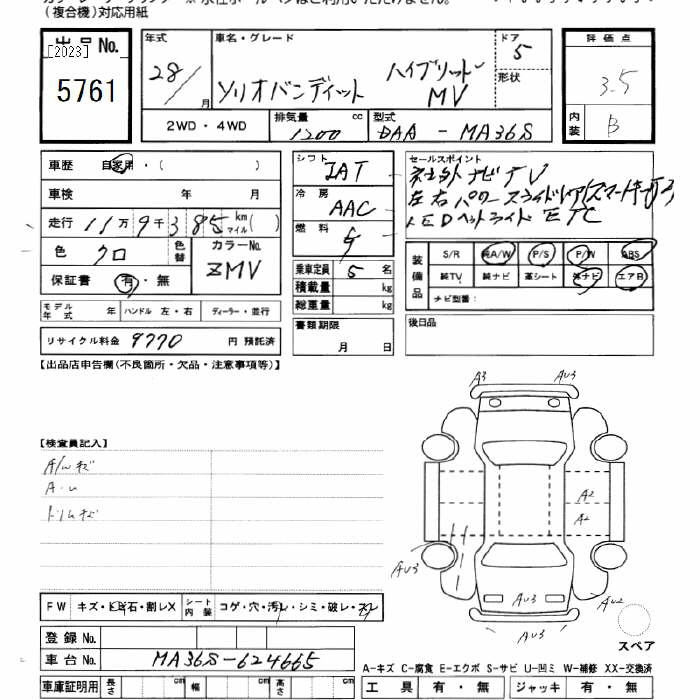 (複合機)対応用紙
出品No.
[2023]
5761
年式
28/月
車名・グレード
ソリオバンディット ハイブリット MV
ドア
5
形状
評価点
3.5
内装
B
2WD・4WD
排気量
1200 cc
型式
DAA - MA36S
車歴 自家用・( )
車検 年 月
走行 11万9千385 km マイル ( )
色 クロ
色替
カラーNo.
ZMV
保証書 有・無
シフト
IAT
冷房
AAC
燃料
G
乗車定員 5 名
積載量 kg
総重量 kg
書類期限
月 日
セールスポイント
社外ナビTV
左右パワースライドドア
LEDヘッドライド ETC
装備品
S/R 純A/W P/S P/W ABS
純TV 純ナビ 革シート エアB
チビ型番:
後日品
モデル年式 年 ハンドル 左・右 ディーラー・並行
リサイクル料金 9770 円 預託済
【出品店申告欄(不良箇所・欠品・注意事項等)】
【検査員記入】
A/Wキズ
A・U
A3 AU3
A2
A2
AU3 AU3 AU2
AU3
スペア
FW キズ・石・割レX
シート内装 コゲ・穴・汚レ・シミ・破レ・スレ
登録No.
車台No. MA36S-624665
車庫証明用 長さ cm 幅 cm 高さ cm
A-キズ C-腐食 E-エクボ S-サビ U-凹ミ W-補修 XX-交換済
工具 有・無 ジャッキ 有・無